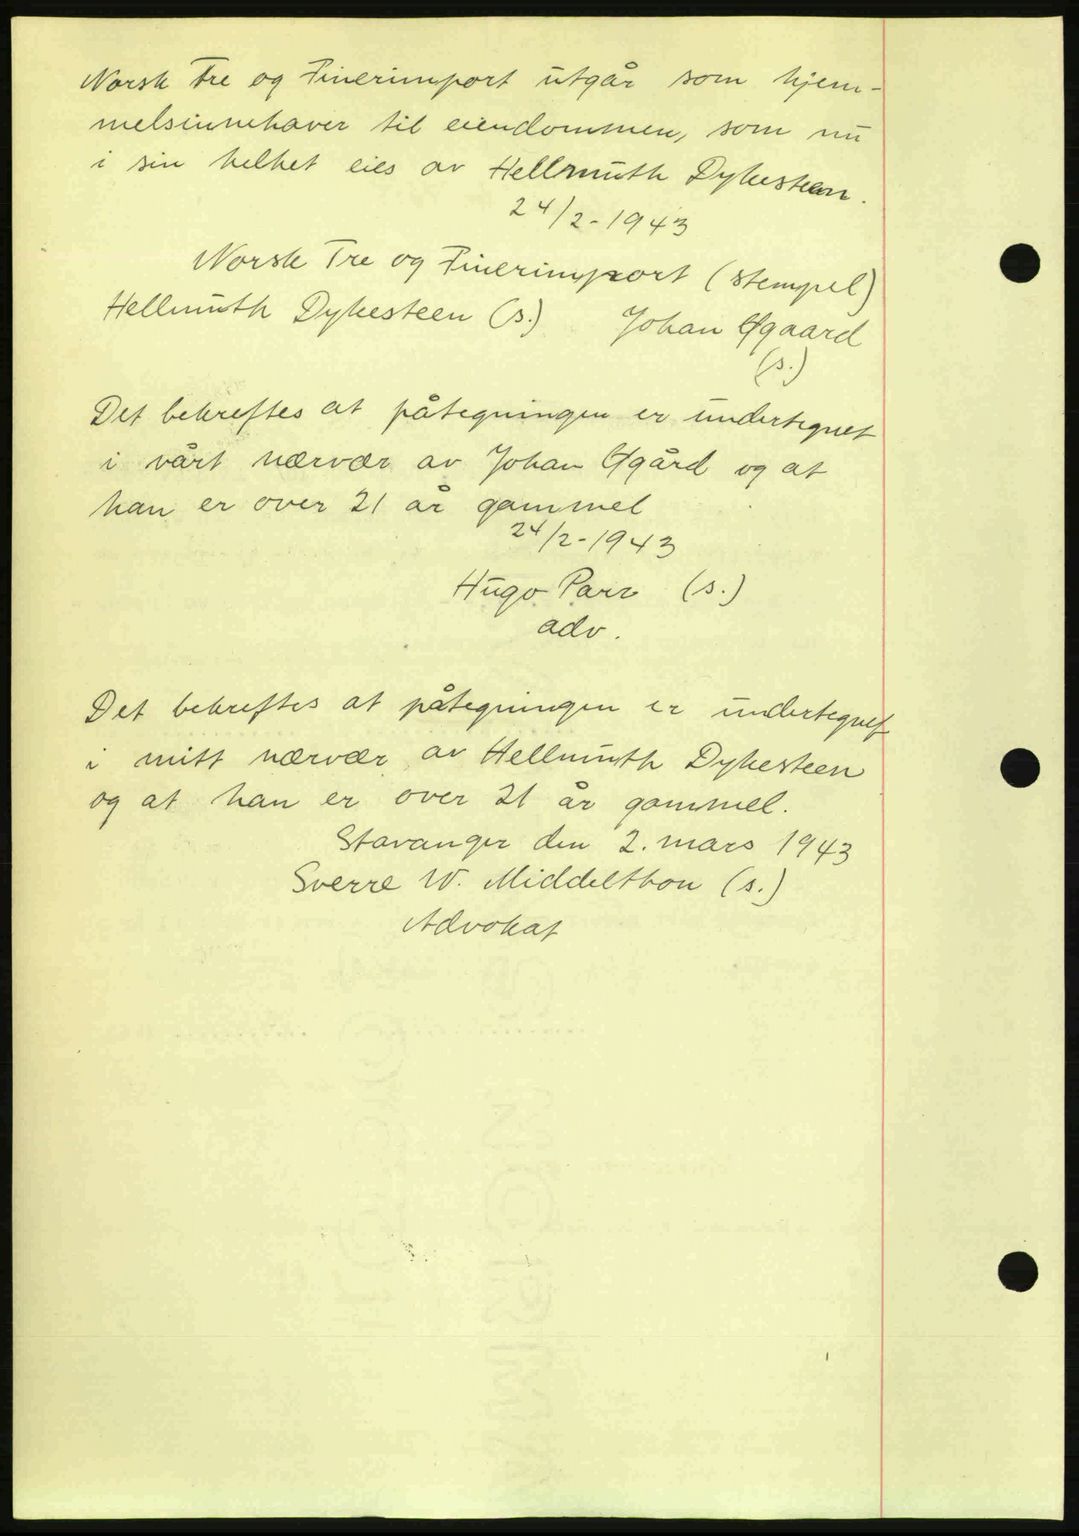 Norsk Tre og Finerimport utgår som hjem-
melsinnehaver til eiendommen, som nu
i sin helhet eies av Hellmuth Dykesteen.
24/2-1943
Norsk Tre og Finerimport (stempel)
Hellmuth Dykesteen (s.) Johan Øgaard
(s.)
Det bekreftes at påtegningen er undertegnet
i vårt nærvær av Johan Øgård og at
han er over 21 år gammel
24/2-1943
Hugo Parr (s.)
adv.
Det bekreftes at påtegningen er undertegnet
i mitt nærvær av Hellmuth Dykesteen
og at han er over 21 år gammel.
Stavanger den 2. mars 1943
Sverre W. Middelthon (s.)
Advokat